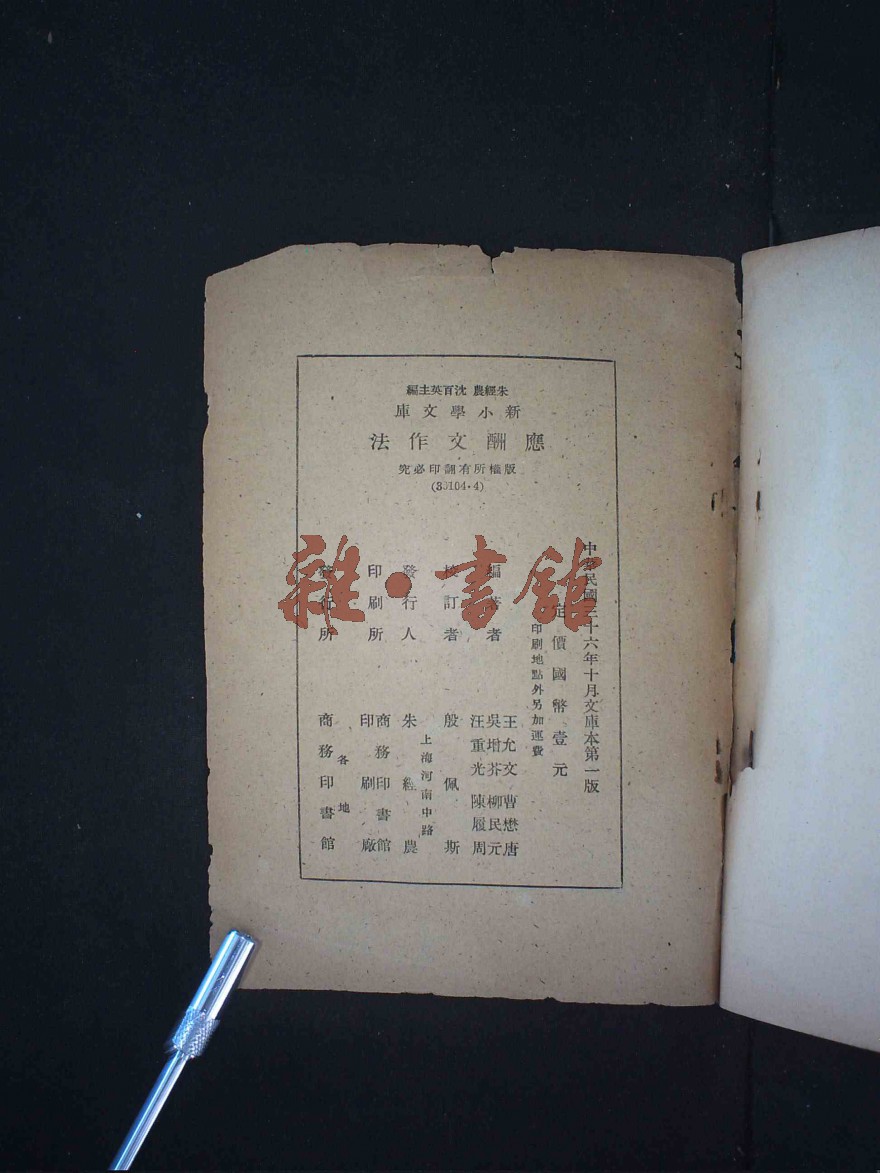 朱經農 沈百英主編
新小學文庫
應酬文作法
版權所有翻印必究
中華民國三十六年十月文庫本第一版
定價國幣壹元
印刷地點外另加運費
編著者 王允文 曹懋唐
吳增芥 柳民元
汪重光 陳履周
校訂者 殷佩斯
上海河南中路
發行人 朱經農
印刷所 商務印書館
印刷廠
各地
發行所 商務印書館
雜·書館